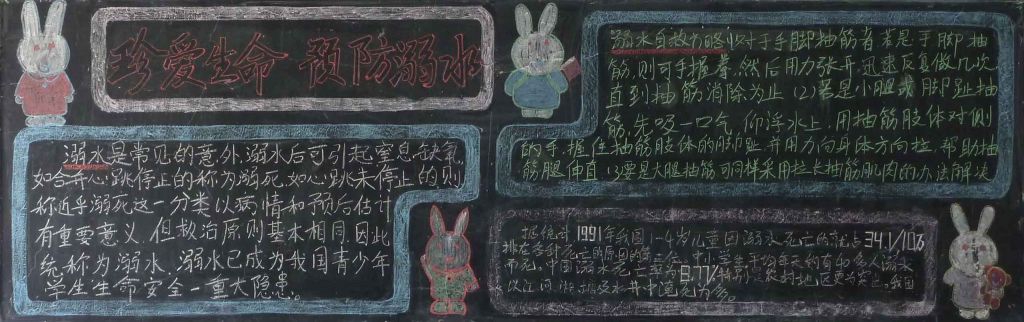 珍爱生命 预防溺水
溺水是常见的意外,溺水后可引起窒息缺氧
如合并心跳停止的称为溺死,如心跳未停止的则
称近乎溺死这一分类以病情和预后估计
有重要意义,但救治原则基本相同,因此
统称为溺水、溺水已成为我国青少年
学生生命安全一重大隐患。
溺水自救方略(1)对于手脚抽筋者若是手脚抽
筋,则可手握拳,然后用力张开,迅速反复做几次
直到抽筋消除为止(2)若是小腿或脚趾抽
筋,先吸一口气,仰浮水上,用抽筋肢体对侧
的手握住抽筋肢体的脚趾,并用力向身体方向拉,帮助抽
筋腿伸直(3)要是大腿抽筋,可同样采用拉长抽筋肌肉的办法解决
据统计1991年我国1-4岁儿童因溺水死亡的 34.1/10万
排在各种死亡的原因的第一位。中小学生平均每天约有40多人溺水
而死,中国溺水死亡率为8.77/ 特别 农村地区更为突出。我国
以江河湖 水井中 为多。